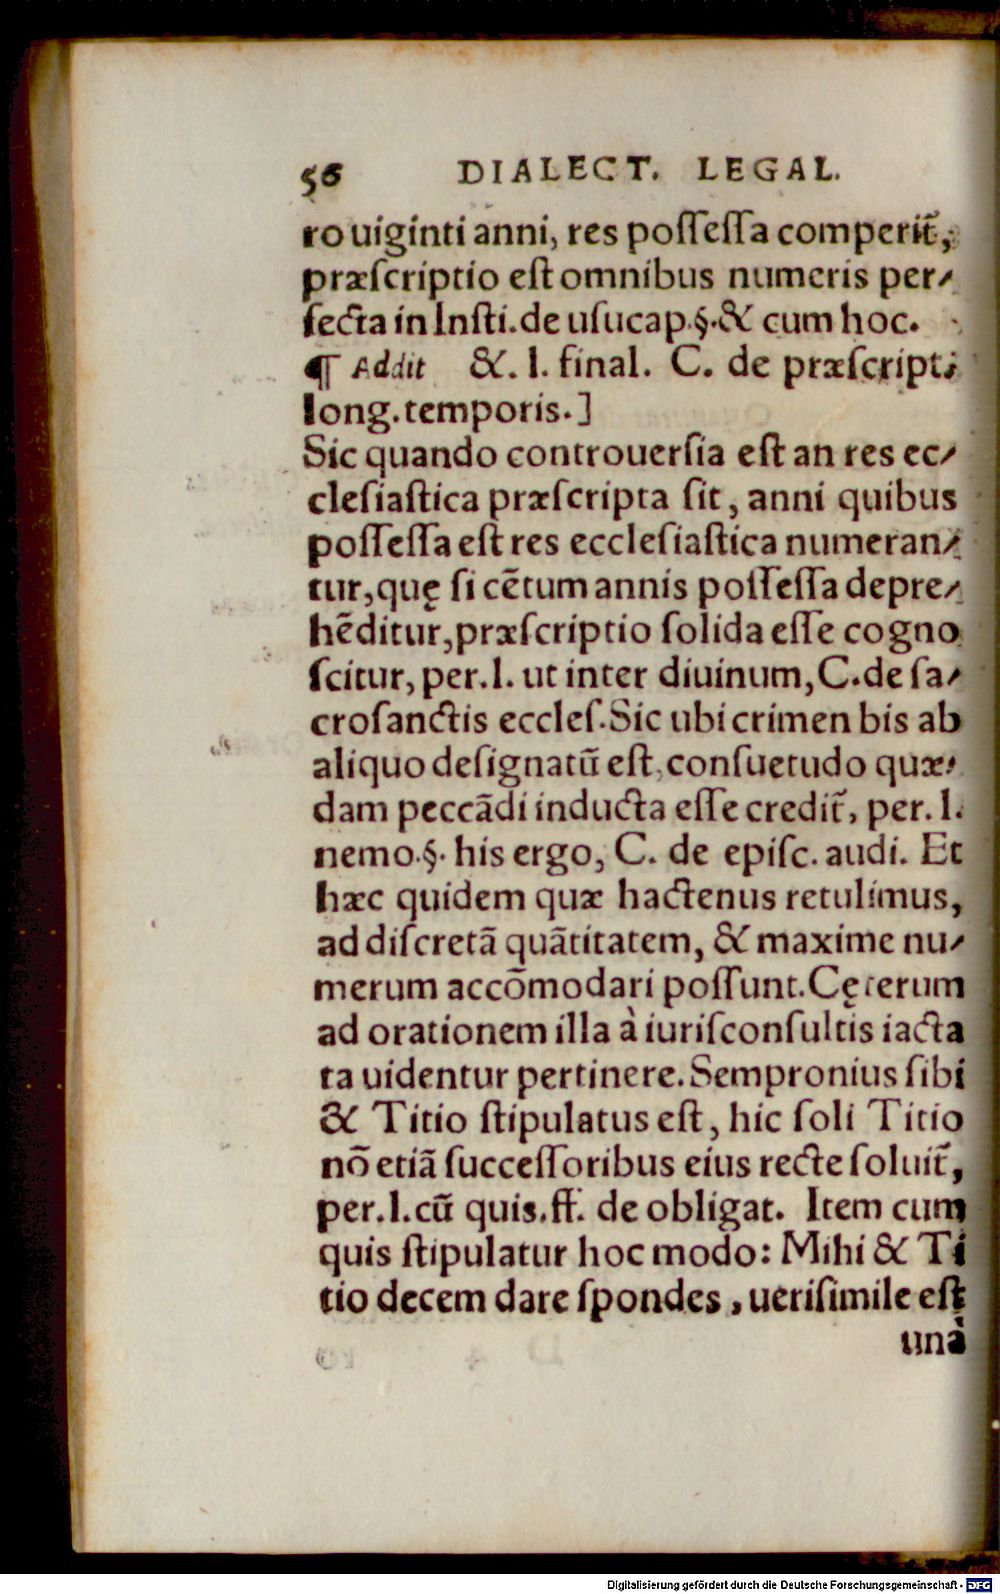 56 DIALECT. LEGAL.
ro uiginti anni, res poſſeſſa comperit̃,
præſcriptio eſt omnibus numeris per⸗
fecta in Inſti. de uſucap. §. & cum hoc.
¶ Addit &. l. final. C. de præſcript.
long. temporis.]
Sic quando controuerſia eſt an res ec⸗
cleſiaſtica præſcripta ſit, anni quibus
poſſeſſa eſt res eccleſiaſtica numeran⸗
tur, quę ſi cẽtum annis poſſeſſa depre⸗
hẽditur, præſcriptio ſolida eſſe cogno
ſcitur, per. l. ut inter diuinum, C. de ſa⸗
croſanctis eccleſ. Sic ubi crimen bis ab
aliquo deſignatũ eſt, conſuetudo quæ⸗
dam peccãdi inducta eſſe credit̃, per. l.
nemo. §. his ergo, C. de epiſc. audi. Et
hæc quidem quæ hactenus retulimus,
ad diſcretã quãtitatem, & maxime nu⸗
merum accõmodari poſſunt. Cęterum
ad orationem illa à iuriſconſultis iacta
ta uidentur pertinere. Sempronius ſibi
& Titio ſtipulatus eſt, hic ſoli Titio
nõ etiã ſucceſſoribus eius recte ſoluit̃,
per. l. cũ quis. ff. de obligat. Item cum
quis ſtipulatur hoc modo: Mihi & Ti
tio decem dare ſpondes, ueriſimile eſt
unà
Digitalisierung gefördert durch die Deutsche Forschungsgemeinschaft - DFG